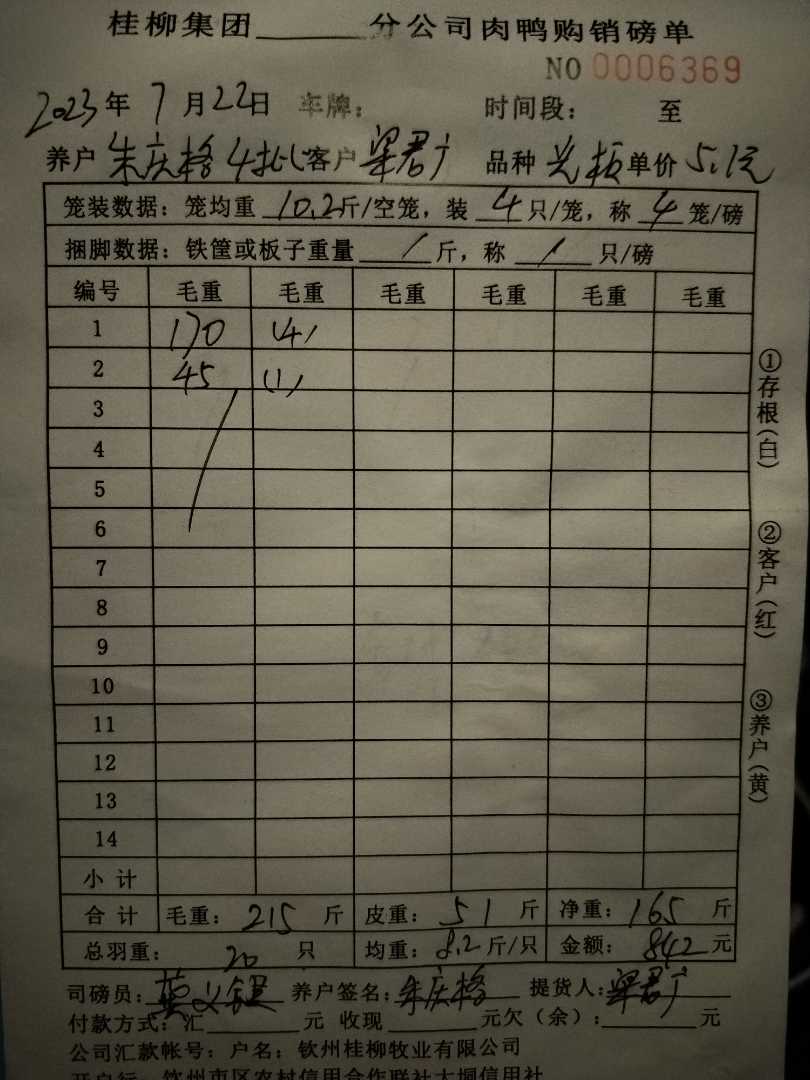 桂柳集团______分公司肉鸭购销磅单
NO 0006369
2023年7月22日 车牌: 时间段: 至
养户 朱庆格 4批 客户 梁君广 品种 光板 单价 5.1元
笼装数据: 笼均重 10.2斤/空笼, 装 4 只/笼, 称 4 笼/磅
捆脚数据: 铁筐或板子重量 / 斤, 称 / 只/磅
编号 毛重 毛重 毛重 毛重 毛重 毛重
1 170 (4)
2 45 (1)
3
4
5
6
7
8
9
10
11
12
13
14
小计
合计 毛重: 215 斤 皮重: 51 斤 净重: 165 斤
总羽重: 20 只 均重: 8.2斤/只 金额: 842元
司磅员: 养户签名: 朱庆格 提货人: 梁君广
付款方式: 汇______元 收现______元欠(余):______元
公司汇款帐号: 户名: 钦州桂柳牧业有限公司
开户行 钦州市区农村信用合作联社大垌信用社
①存根(白)
②客户(红)
③养户(黄)